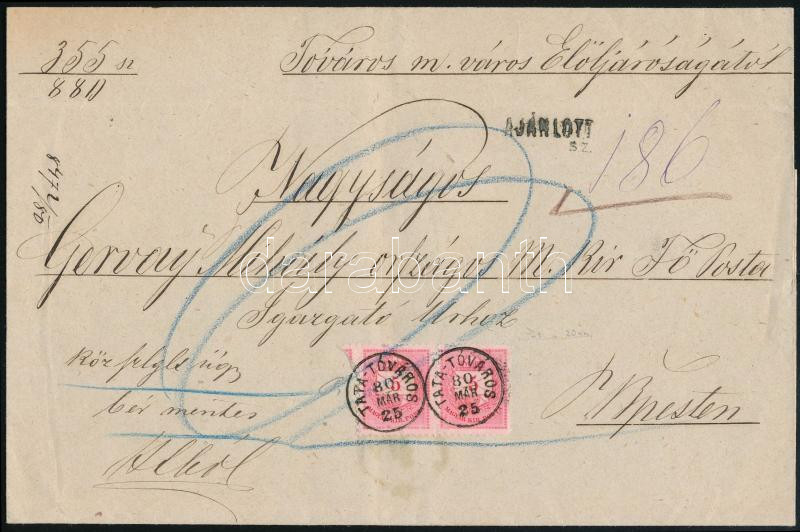 355 sz
880
Tóváros m. város Előljáróságától
AJÁNLOTT
SZ.
186
8472/80
Nagyságos
Gervay Mihály országos M. Kir Fő Posta
Igazgató Úrhoz
darabanth
bér mentes
TATA-TÓVÁROS
80
MÁR
25
TATA-TÓVÁROS
80
MÁR
25
Bpesten